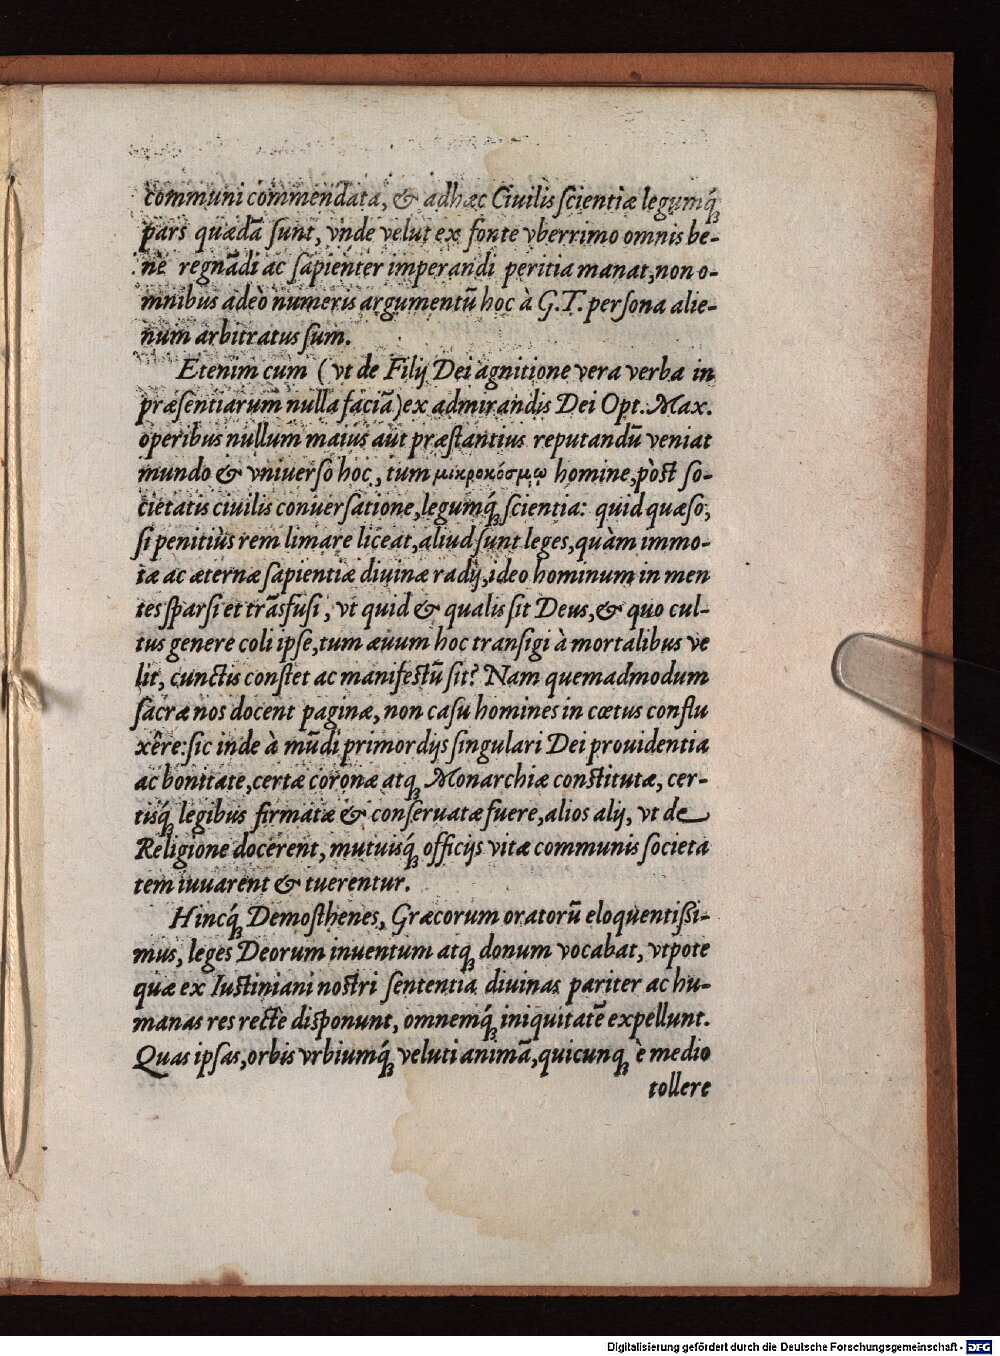 communi commendata, & adhæc Ciuilis scientiæ legumq́ꝫ
pars quædā sunt, vnde velut ex fonte vberrimo omnis be-
nè regnādi ac sapienter imperandi peritia manat, non o-
mnibus adeò numeris argumentū hoc à G.T. persona alie-
num arbitratus sum.
Etenim cum (vt de Filij Dei agnitione vera verba in
præsentiarum nulla faciā) ex admirandis Dei Opt. Max.
operibus nullum maius aut præstantius reputandū veniat
mundo & vniuerso hoc, tum μικροκόσμῳ homine, pòst so-
cietatis ciuilis conuersatione, legumq́ꝫ scientia: quid quæso,
si penitiùs rem limare liceat, aliud sunt leges, quàm immo-
tæ ac æternæ sapientiæ diuinæ radij, ideo hominum in men
tes sparsi et trāsfusi, vt quid & qualis sit Deus, & quo cul-
tus genere coli ipse, tum æuum hoc transigi à mortalibus ve
lit, cunctis constet ac manifestū sit? Nam quemadmodum
sacræ nos docent paginæ, non casu homines in cœtus conflu
xêre: sic inde à mūdi primordijs singulari Dei prouidentia
ac bonitate, certæ coronæ atqꝫ Monarchiæ constitutæ, cer-
tisq́ꝫ legibus firmatæ & conseruatæ fuere, alios alij, vt de
Religione docerent, mutuisq́ꝫ officijs vitæ communis societa
tem iuuarent & tuerentur.
Hincq́ꝫ Demosthenes, Græcorum oratorū eloquentißi-
mus, leges Deorum inuentum atqꝫ donum vocabat, vtpote
quæ ex Iustiniani nostri sententia diuinas pariter ac hu-
manas res rectè disponunt, omnemq́ꝫ iniquitatē expellunt.
Quas ipsas, orbis vrbiumq́ꝫ veluti animā, quicunqꝫ è medio
tollere
Digitalisierung gefördert durch die Deutsche Forschungsgemeinschaft - DFG